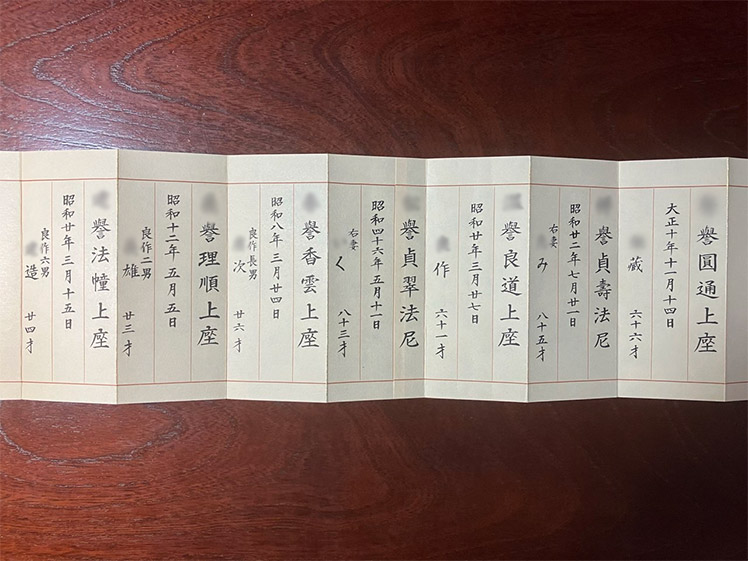 譽圓通上座
大正十年十一月十四日
藏 六十六才
譽貞壽法尼
昭和廿二年七月廿一日
右妻
み 八十五才
譽良道上座
昭和廿年三月廿七日
作 六十一才
譽貞翠法尼
昭和四十六年五月十一日
右妻
く 八十三才
譽香雲上座
昭和八年三月廿四日
良作長男
次 廿六才
譽理順上座
昭和十二年五月五日
良作二男
雄 廿三才
譽法幢上座
昭和廿年三月十五日
良作六男
造 廿四才